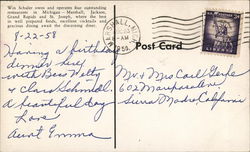 Win Schuler owns and operates four outstanding
restaurants in Michigan — Marshall, Jackson,
Grand Rapids and St. Joseph, where the best
in well prepared foods, excellent cocktails and
gracious dining await the discerning diner.
8-22-58
Having a birthday
dinner here
with Bess
& Clara Schmidt.
A beautiful day
Love
Aunt Emma
MARSHALL, MICH.
AM
1958
Post Card
Mr & Mrs Carl
602
Sierra Madre, California